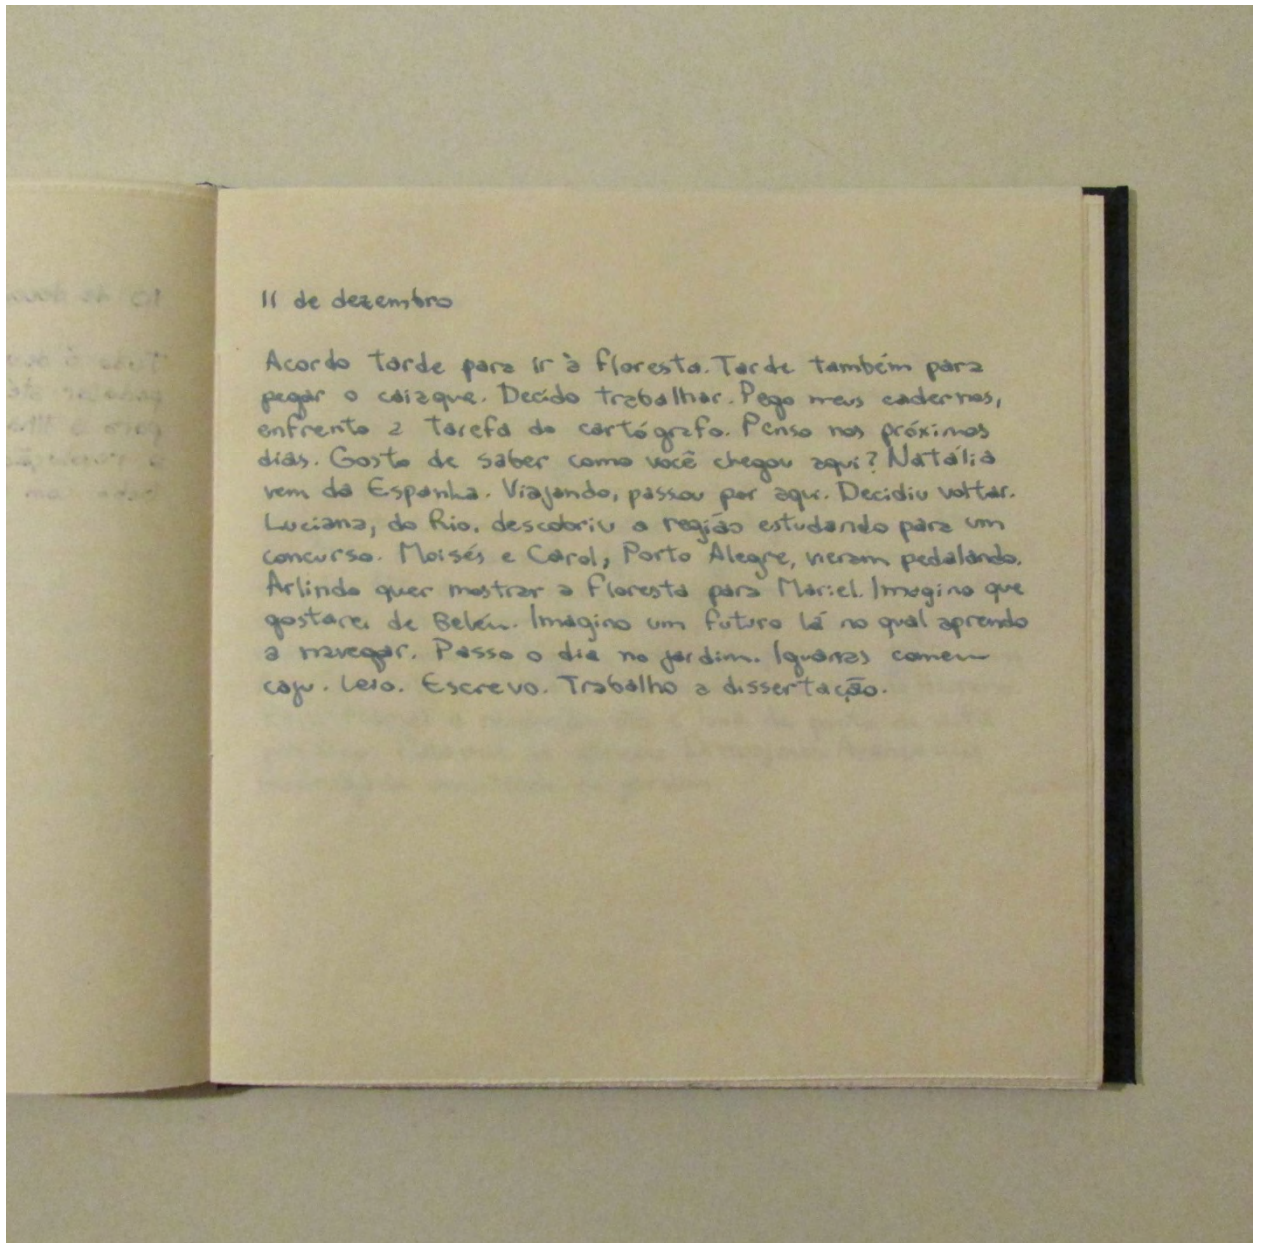 11 de dezembro
Acordo tarde para ir à floresta. Tarde também para
pegar o caiaque. Decido trabalhar. Pego meus cadernos,
enfrento a tarefa do cartógrafo. Penso nos próximos
dias. Gosto de saber como você chegou aqui? Natália
vem da Espanha. Viajando, passou por aqui. Decidiu voltar.
Luciana, do Rio, descobriu a região estudando para um
concurso. Moisés e Carol, Porto Alegre, vieram pedalando.
Arlindo quer mostrar a floresta para Mariel. Imagino que
gostarei de Belém. Imagino um futuro lá no qual aprendo
a navegar. Passo o dia no jardim. Iguanas comem
caju. Leio. Escrevo. Trabalho a dissertação.